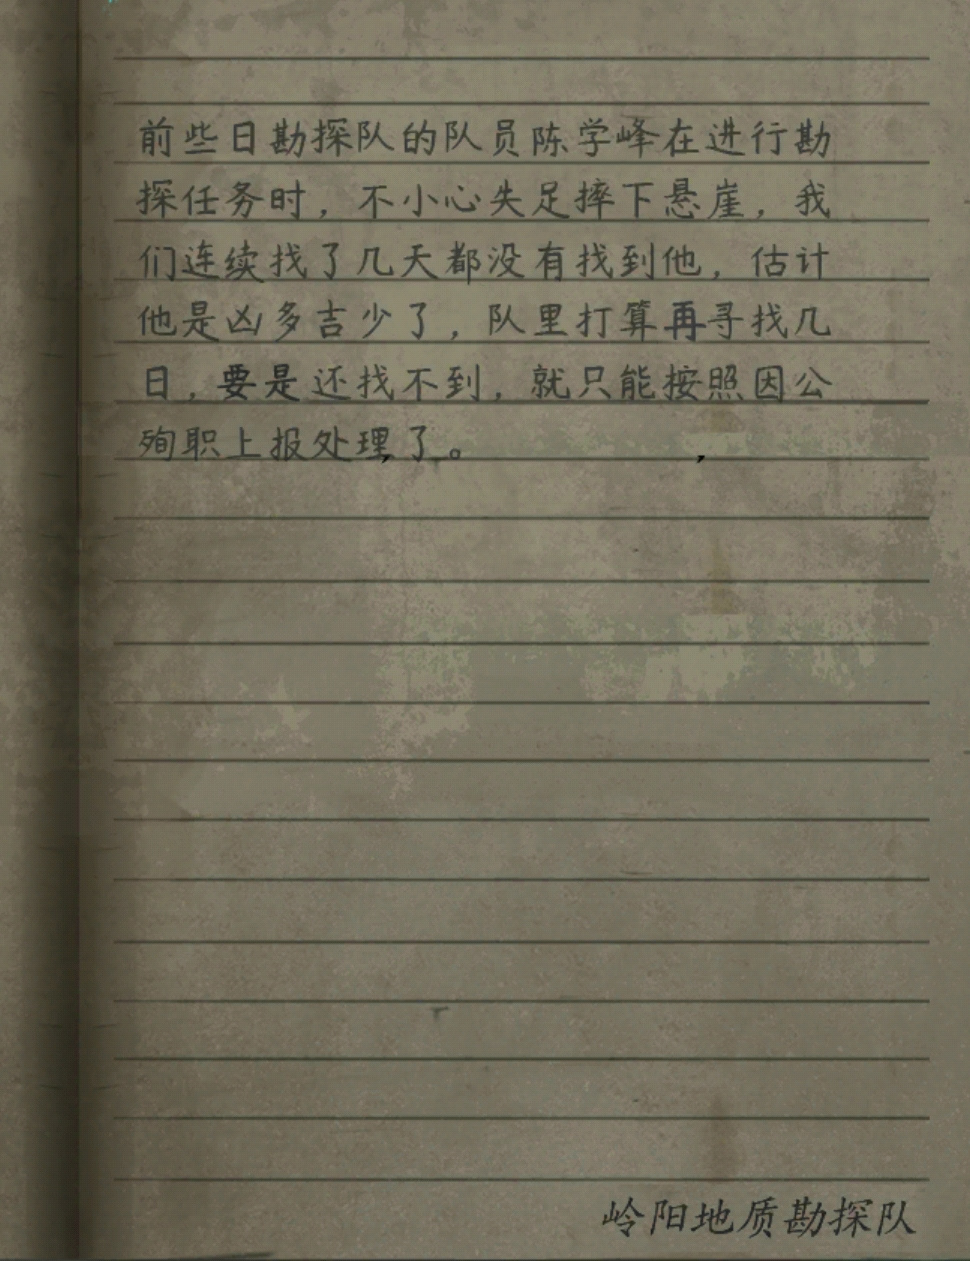 前些日勘探队的队员陈学峰在进行勘
探任务时，不小心失足摔下悬崖，我
们连续找了几天都没有找到他，估计
他是凶多吉少了，队里打算再寻找几
日，要是还找不到，就只能按照因公
殉职上报处理了。
岭阳地质勘探队